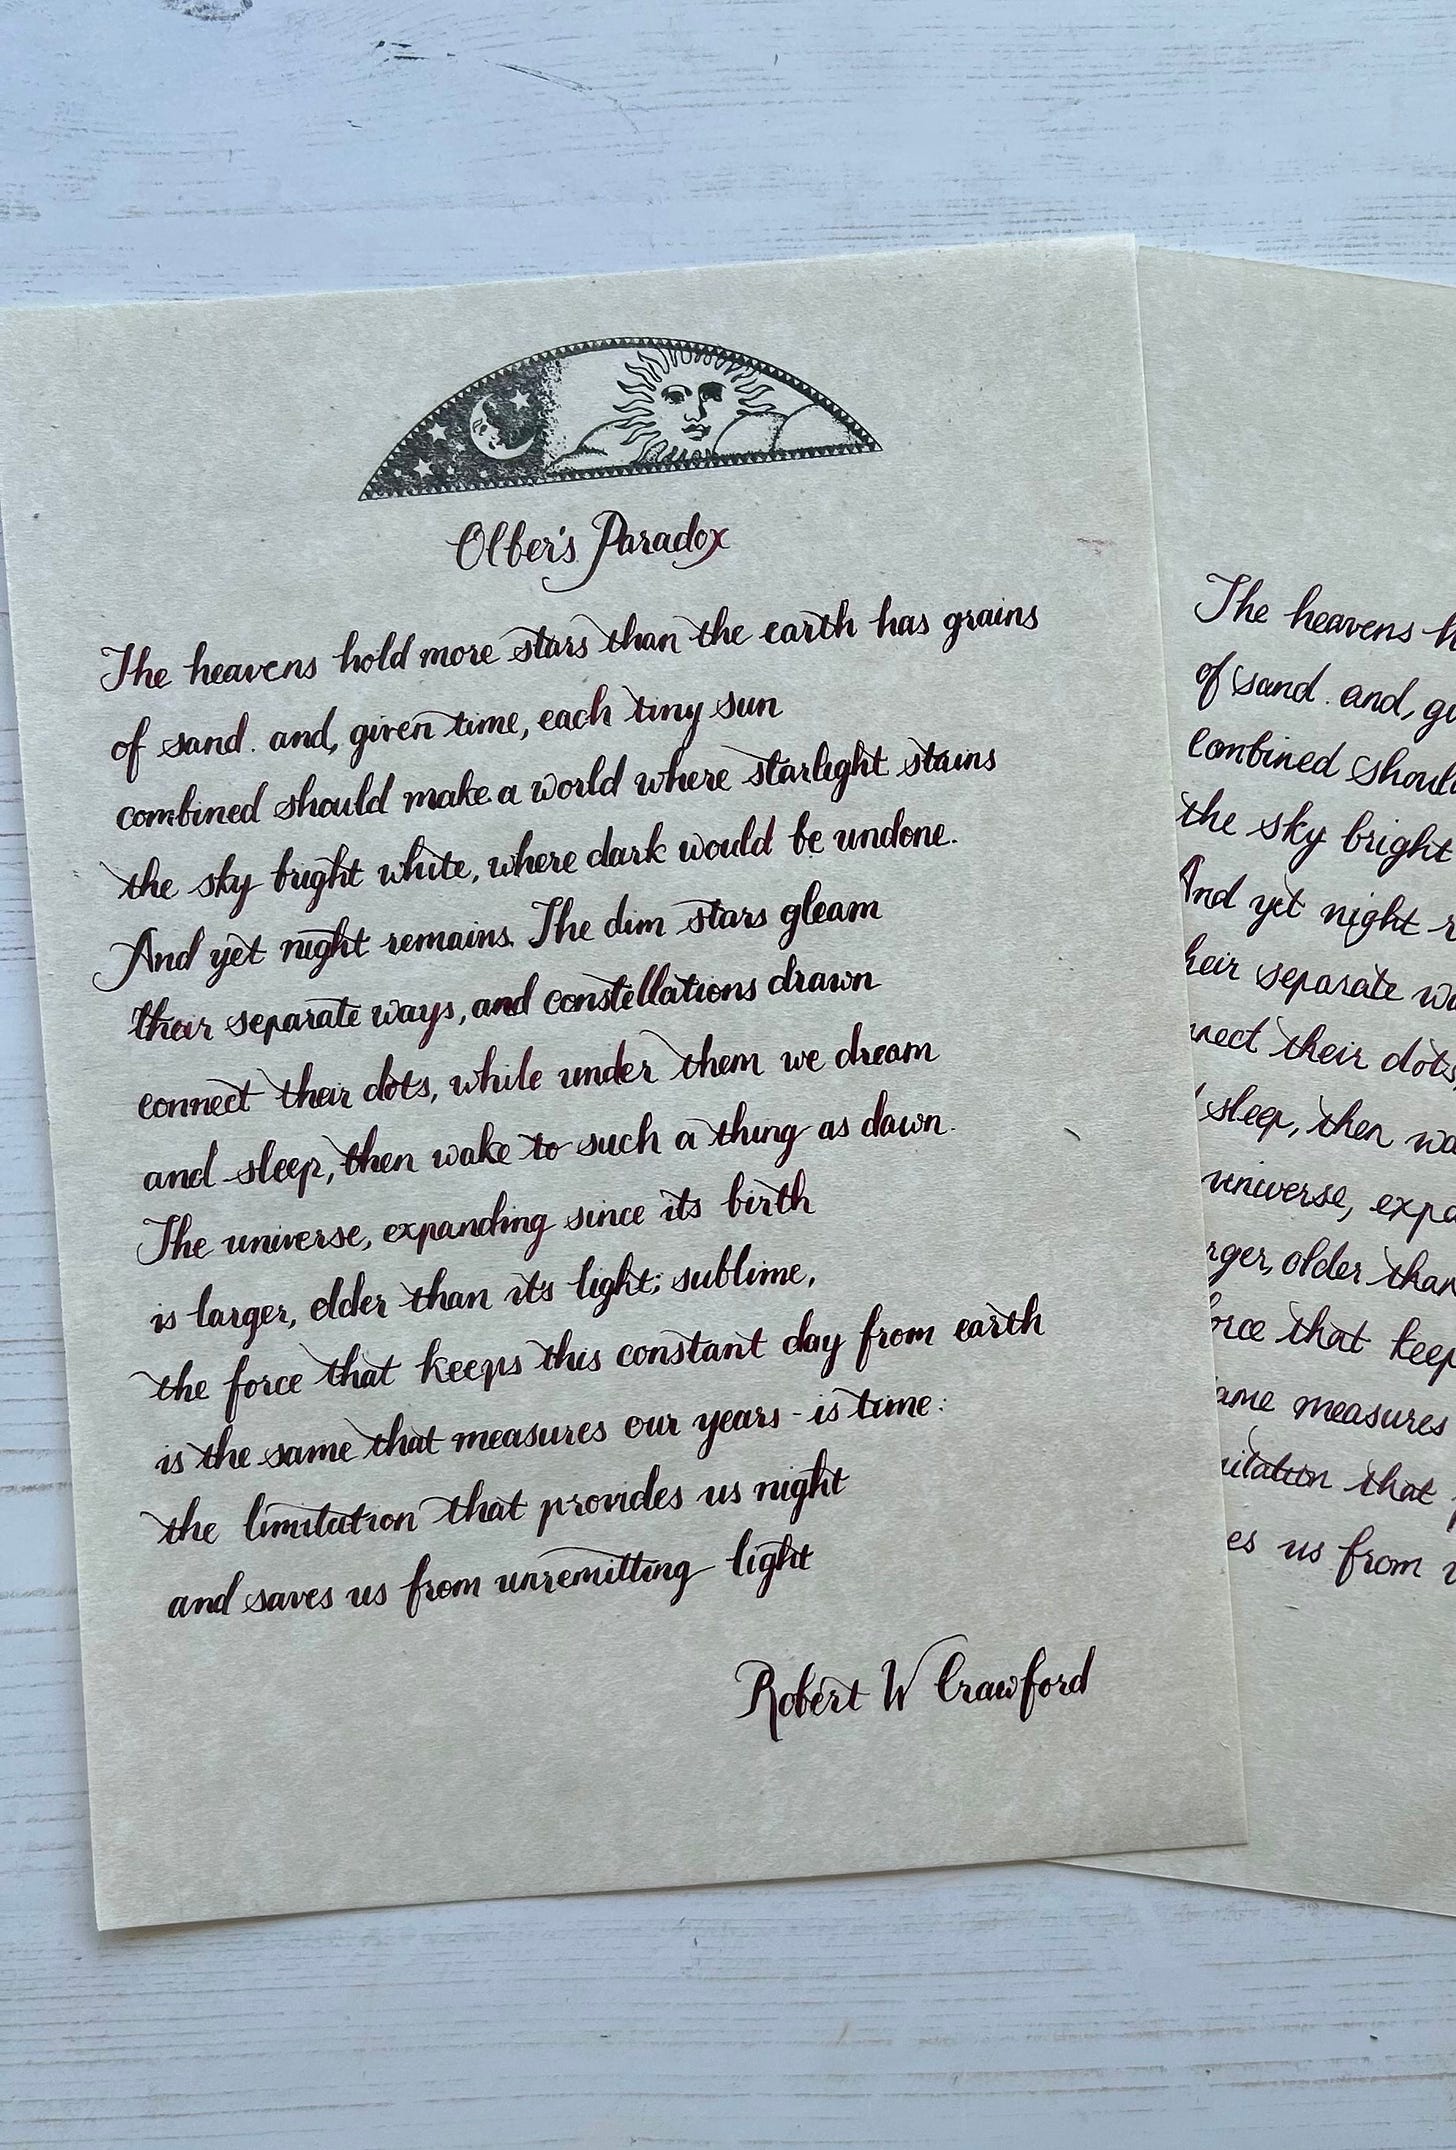 Olber's Paradox
The heavens hold more stars than the earth has grains
of sand. and, given time, each tiny sun
combined should make a world where starlight stains
the sky bright white, where dark would be undone.
And yet night remains. The dim stars gleam
their separate ways, and constellations drawn
connect their dots, while under them we dream
and sleep, then wake to such a thing as dawn.
The universe, expanding since its birth
is larger, older than its light; sublime,
the force that keeps this constant day from earth
is the same that measures our years - is time:
the limitation that provides us night
and saves us from unremitting light
Robert W Crawford
The heavens h
of sand. and, gi
combined shoul
the sky bright
And yet night r
heir separate wa
nnect their dots,
sleep, then wa
universe, expa
rger, older than
force that keep
ame measures
itation that p
es us from